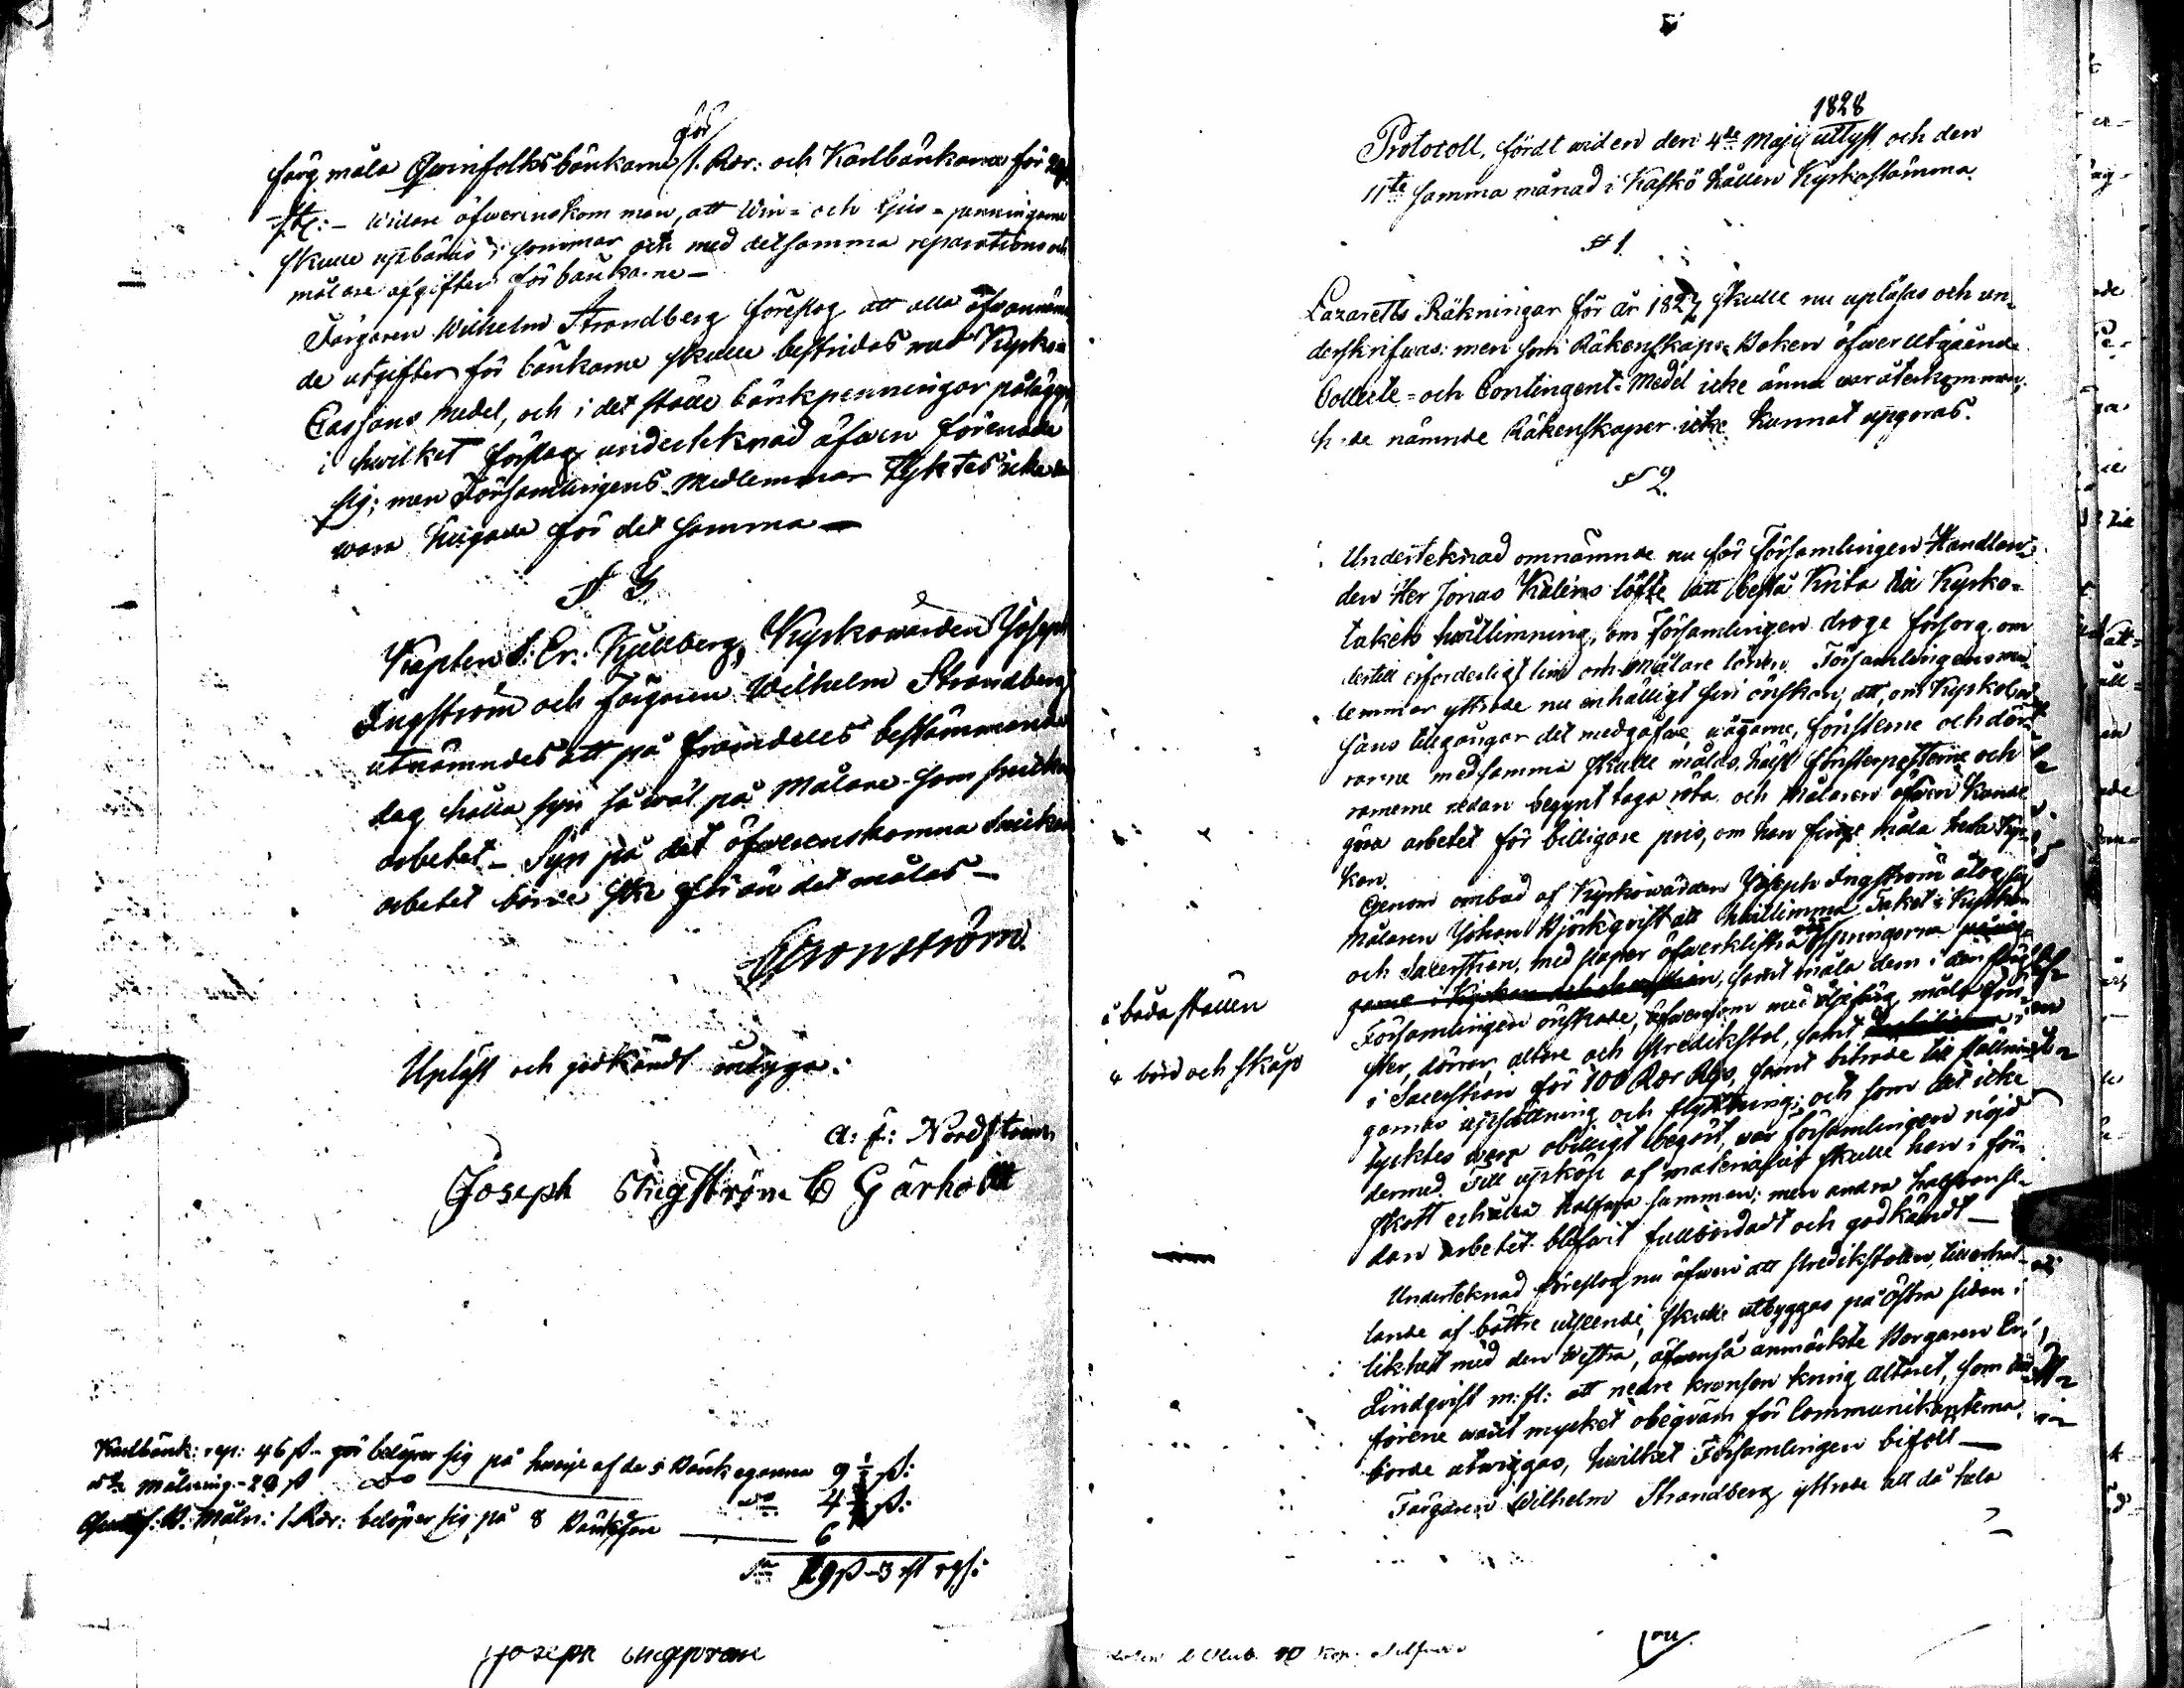 för
färg måla Qwinfolksbänkarne 1. Rdr: och Karlbänkarne för
Widare öfwerenskom man, att Win- och Ljus-penningarne
skulle upbäras i sommar och med detsamma reparations och
målare afgiften för bänkarne —
Färgaren Wilhelm Strandberg föreslog att alla
de utgifter för bänkarne skulle bestridas med Kyrko-
Cassans medel, och i det ställe bänkpenningar påläggas,
i hwilket förslag underteknad äfwen förenade
sig; men Församlingens Medlemmar tyktes icke
wara hugade för det samma —
Kapten Er. Kjellberg, Kyrkowärden Joseph
Ingström och Färgaren Wilhelm Strandberg
utnämndes att på framdeles bestämmande
dag hålla syn så wäl på Målare- som snickare
arbetet — Syn på det öfwerenskomna snickare
arbetet borde ske förän det målas —
Cronström
Upläst och godkändt intyga:
A: F: Nordström
Joseph Ingström C Gårholtt
Karlbänk: rep: 46 ß. gör belöper sig på hwarje af de 5 Bänkegarne 9 ß:
do målning - 20 ß do 4 ß:
Måln: 1. Rdr: belöper sig på 8 6
19 ß - 3 rst rgs:
Joseph Ingström
1828
Protocoll, fördt wid en den 4de Maji utlyst och den
11te samma månad i Kaskö hållen Kyrkostämma.
§ 1
Lazaretts Räkningar för år 1827 skulle nu upläsas och un-
derskrifwas: men som Räkenskaps Boken öfwer utgående
Collecte- och Contingent-Medel icke ännu war återkommen,
nämnde Räkenskaper icke kunnat upgöras.
§ 2.
Underteknad omnämnde nu för Församlingen Handlan-
den Her Jonas Kaléns löfte att bestå Krita till Kyrko-
takets hwitlimning, om Församlingen droge försorg om
dertill erforderligt lim och Målare lönen. Församlingens med-
lemmar yttrade nu enhälligt sin önskan, att, om Kyrkokas-
sans tillgångar det medgåfwe, wägarne, fönsterne och dör-
rarne med samma skulle målas, hälst fönsterposterne och
ramerne redan begynt taga röta och Målaren äfwen kunde
göra arbetet för billigare pris, om han finge måla hela Kyr-
kan.
Genom ombud af Kyrkowärden Joseph Ingström åtog sig
Målaren Johan Björkqvist att hwitlimma Taket i Kyrkan
och Sacerstian, med paper öfwerklistra springorna
i båda ställen
samt måla dem i den färg
Församlingen önskade, äfwensom med oljefärg måla fön-
ster, dörrar, altare och Predikstol, samt
bord och skåp
i Sacerstian för 100 Rdr Rgs, samt biträde till ställnin-
garnes upsättning och flyttning; och som det icke
tycktes wara obilligt begärt, war församlingen nöjd
dermed. Till upköp af materialier skulle han i för-
skott erhålla halfwa summan; men andra hälften se-
dan arbetet blifwit fullbordadt och godkändt —
Underteknad föreslog nu äfwen att Predikstolen, till erhål-
lande af bättre utseende, skulle utbyggas på östra sidan i
likhet med den westra, äfwenså anmärkte Borgaren Er.
Lindqvist m: fl: att nedre kransen kring altaret, som
förene warit mycket obeqväm för Communikanterna
borde utwiggas, hwilket Församlingen biföll —
Färgaren Wilhelm Strandberg yttrade att då hela